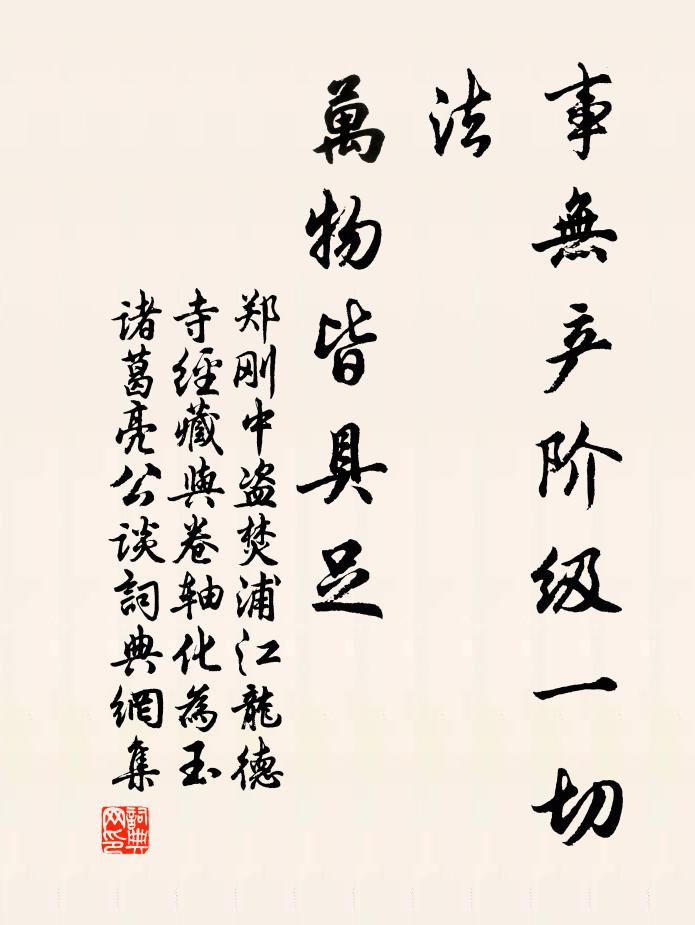 事無产阶级一切
法
萬物皆具足
郑刚中盗焚浦江龍德
寺經藏與卷轴化為玉
诸葛亮公谈詞典網集
詞典
网印